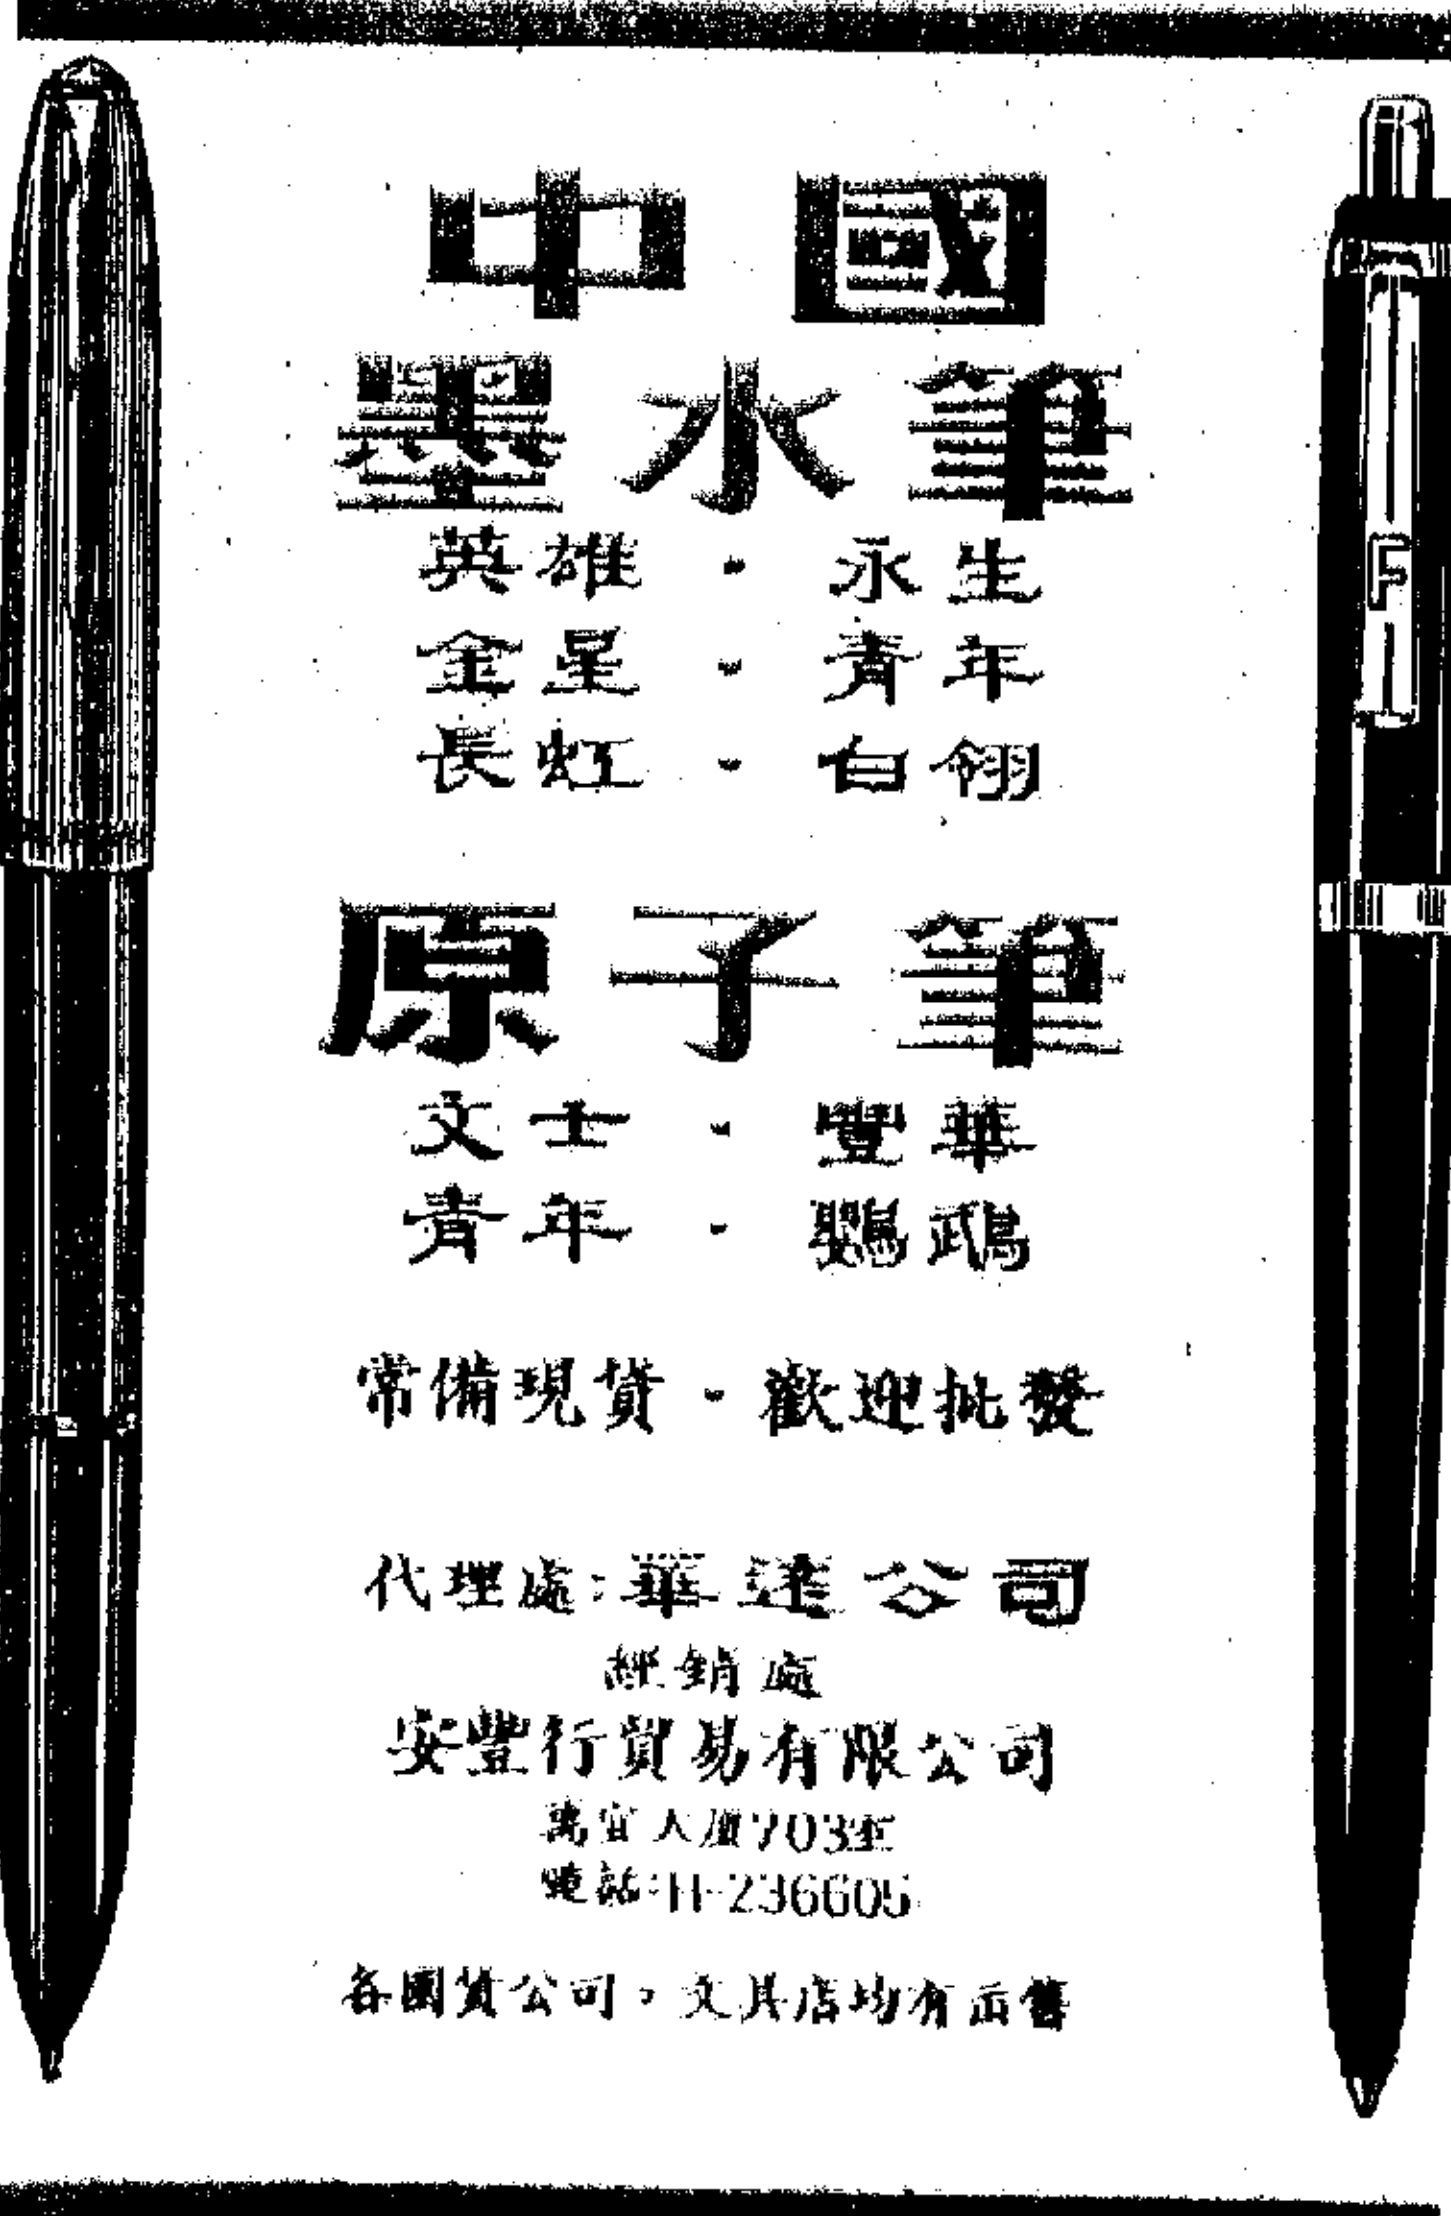 中國
墨水筆
英雄・永生
金星・青年
長虹・白翎
原子筆
文士・豐華
青年・鸚鵡
常備現貨・歡迎批發
代理處：華達公司
經銷處
安豐行貿易有限公司
萬宜大廈703室
電話：H-236605
各國貨公司，文具店均有出售
F